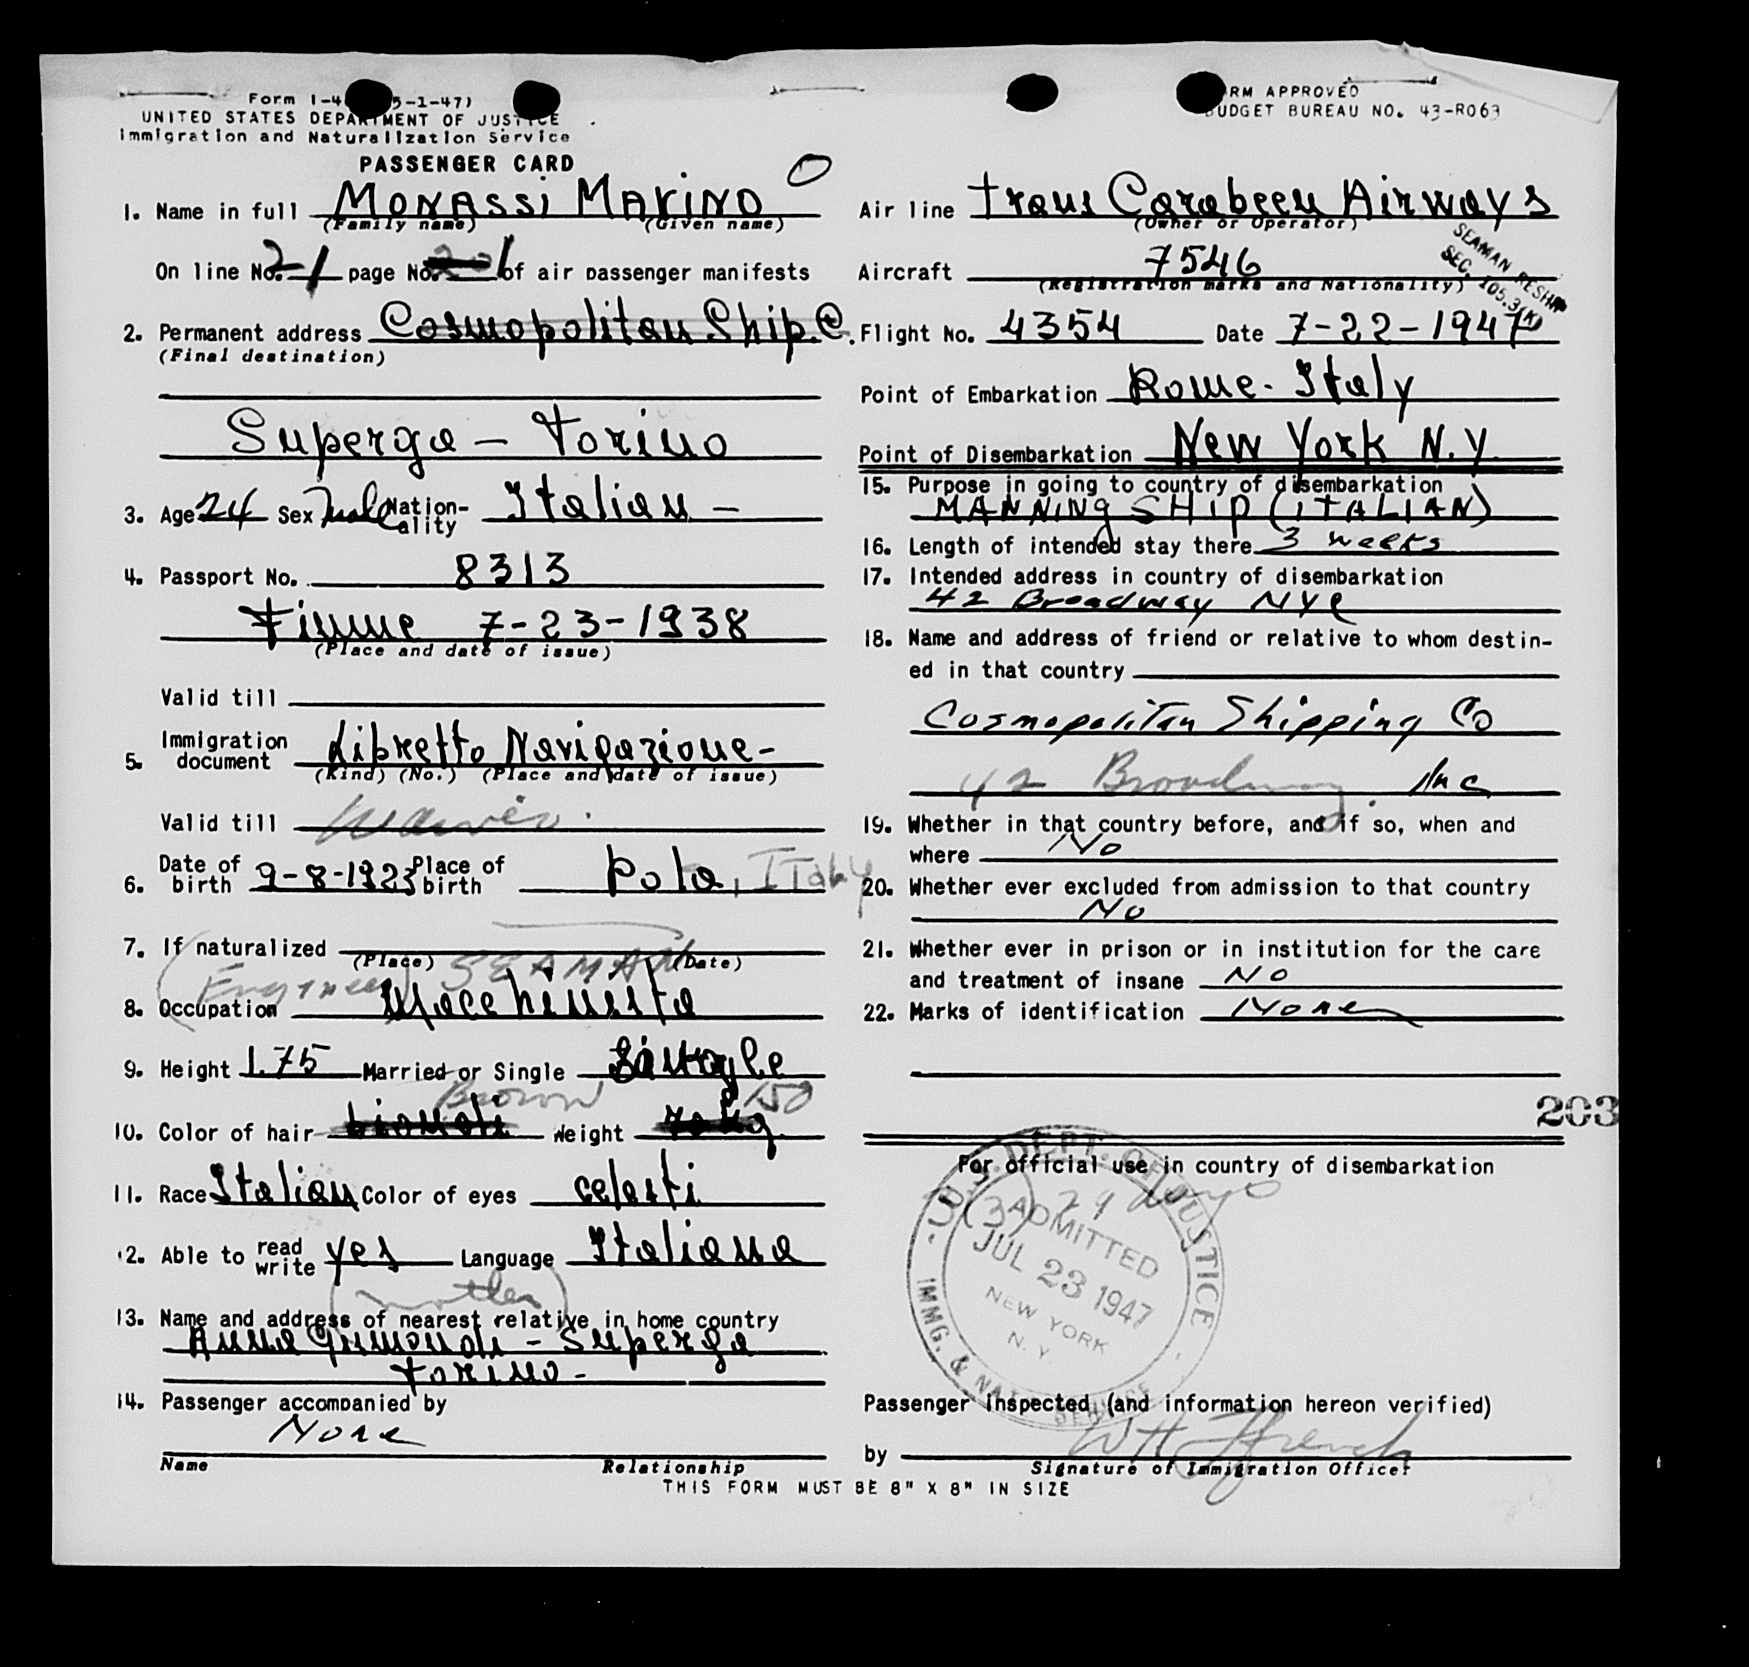 Form I-4 5-1-47)
UNITED STATES DEPARTMENT OF JUSTICE
Immigration and Naturalization Service
PASSENGER CARD
FORM APPROVED
BUDGET BUREAU NO. 43-R063
1. Name in full Monassi Marino
(Family name) (Given name)
On line No. 21 page No. of air passenger manifests
2. Permanent address Cosmopolitan Ship.C.
(Final destination)
Superga - Torino
3. Age 24 Sex Male Nationality Italian -
4. Passport No. 8313
Fiume 7-23-1938
(Place and date of issue)
Valid till
5. Immigration document Libretto Navigazione -
(Kind) (No.) (Place and date of issue)
Valid till
6. Date of birth 9-8-1923 Place of birth Pola, Italy
7. If naturalized
(Place) (Date)
(Engineer) SEAMAN
8. Occupation Macchinista
9. Height 1.75 Married or Single Single
Brown 150
10. Color of hair Weight
11. Race Italian Color of eyes celesti
12. Able to read write yes Language Italiana
(mother)
13. Name and address of nearest relative in home country
Anna - Superga
Torino -
14. Passenger accompanied by
None
Name Relationship
Air line Trans Carabeen Airways
(Owner or Operator)
SEAMAN RESHIP
SEC. 105.3(K)
Aircraft 7546
(Registration marks and Nationality)
Flight No. 4354 Date 7-22-1947
Point of Embarkation Rome - Italy
Point of Disembarkation New York N.Y.
15. Purpose in going to country of disembarkation
MANNING SHIP (ITALIAN)
16. Length of intended stay there 3 weeks
17. Intended address in country of disembarkation
42 Broadway NYC
18. Name and address of friend or relative to whom destin-
ed in that country
Cosmopolitan Shipping Co
42 Broadway. Inc
19. Whether in that country before, and if so, when and
where No
20. Whether ever excluded from admission to that country
No
21. Whether ever in prison or in institution for the care
and treatment of insane No
22. Marks of identification None
203
For official use in country of disembarkation
U.S. DEPT. OF JUSTICE
(3) 29 days
ADMITTED
JUL 23 1947
NEW YORK
N. Y.
IMMG. & NATZ. SERVICE
Passenger inspected (and information hereon verified)
by WH Ffrench
Signature of Immigration Officer
THIS FORM MUST BE 8" X 8" IN SIZE